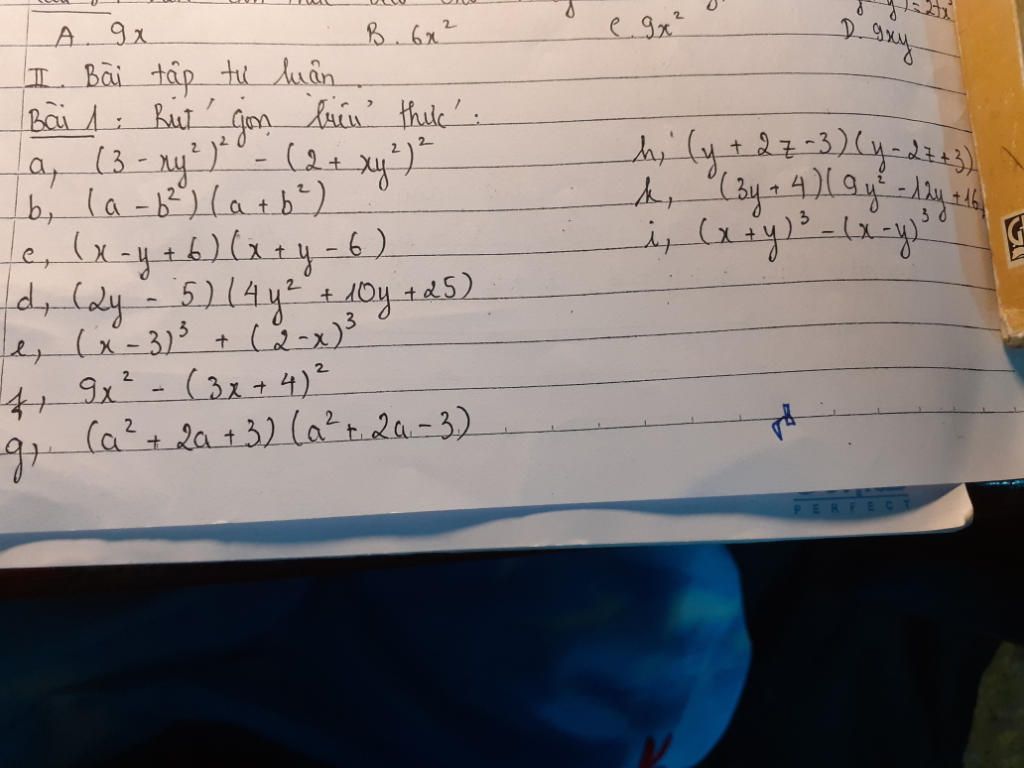 A. 9x B. 6x² C. 9x² D. 9xy
II. Bài tập tự luận.
Bài 1: Rút gọn biểu thức:
a, (3 - xy²)² - (2 + xy²)²
b, (a - b²)(a + b²)
c, (x - y + 6)(x + y - 6)
d, (2y - 5)(4y² + 10y + 25)
e, (x - 3)³ + (2 - x)³
f, 9x² - (3x + 4)²
g, (a² + 2a + 3)(a² + 2a - 3)
h, (y + 2z - 3)(y - 2z + 3)
k, (3y + 4)(9y² - 12y + 16)
i, (x + y)³ - (x - y)³
PERFECT